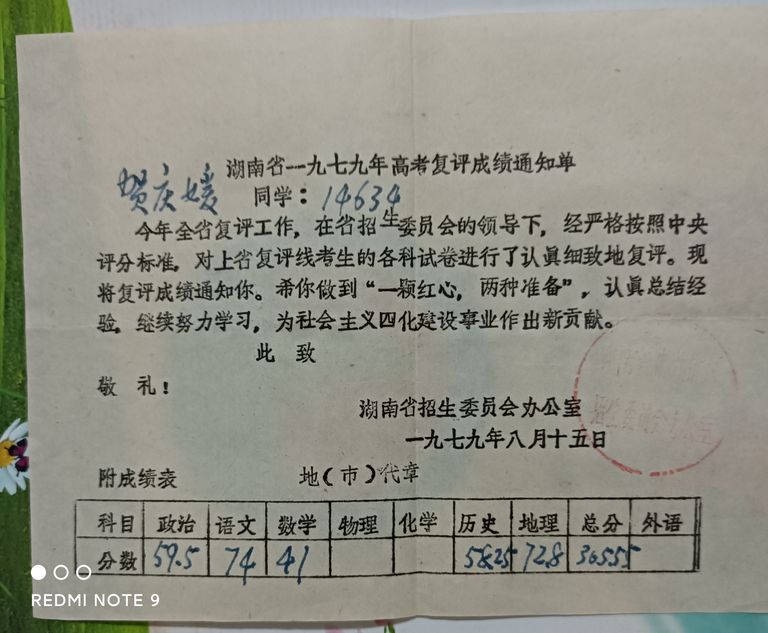 湖南省一九七九年高考复评成绩通知单
贺庆媛 同学：14634
今年全省复评工作，在省招生委员会的领导下，经严格按照中央
评分标准，对上省复评线考生的各科试卷进行了认真细致地复评。现
将复评成绩通知你。希你做到“一颗红心，两种准备”，认真总结经
验，继续努力学习，为社会主义四化建设事业作出新贡献。
此 致
敬 礼！
湖南省招生委员会办公室
一九七九年八月十五日
附成绩表 地（市）代章
科目 政治 语文 数学 物理 化学 历史 地理 总分 外语
分数 59.5 74 41 58.25 72.8 305.55
REDMI NOTE 9